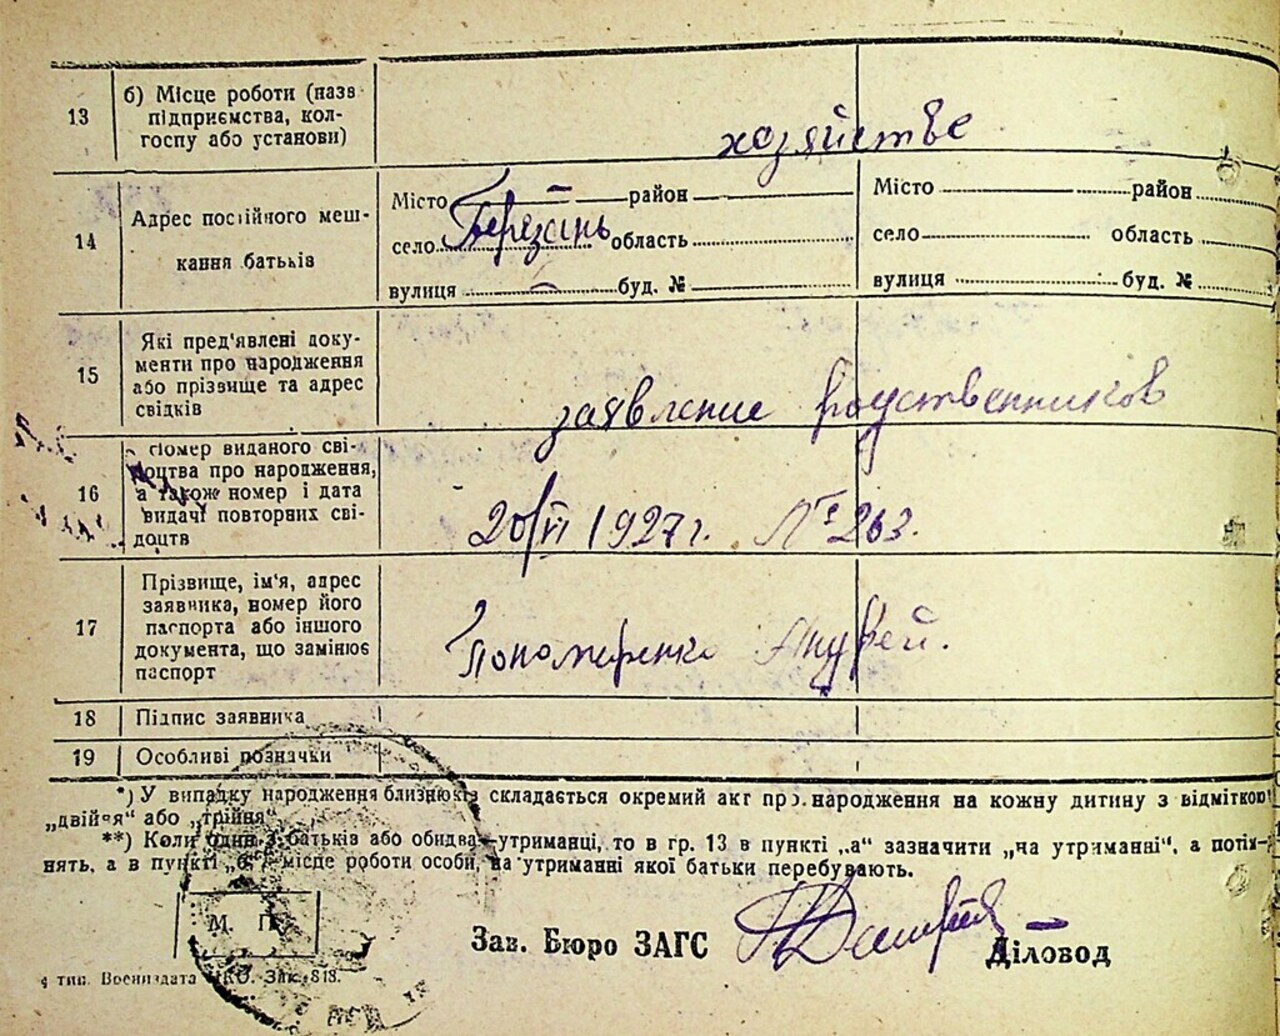 13
б) Місце роботи (назв
підприємства, кол-
госпу або установи)
хозяйстве
14
Адрес постійного меш-
кання батьків
Місто — район
село Березань область
вулиця — буд. №
Місто район
село область
вулиця буд. №
15
Які пред'явлені доку-
менти про народження
або прізвище та адрес
свідків
заявление родственников
16
Номер виданого сві-
доцтва про народження,
а також номер і дата
видачі повторних сві-
доцтв
20/VI 1927 г. № 263.
17
Прізвище, ім'я, адрес
заявника, номер його
паспорта або іншого
документа, що замінює
паспорт
Пономаренко Андрей.
18
Підпис заявника
19
Особливі позначки
*) У випадку народження близнюків складається окремий акт про народження на кожну дитину з відміткою
„двійня“ або „трійня“.
**) Коли один з батьків або обидва—утриманці, то в гр. 13 в пункті „а“ зазначити „на утриманні“, а потім-
нять, а в пункті „б“ — місце роботи особи, на утриманні якої батьки перебувають.
М. П.
Зав. Бюро ЗАГС
Діловод
тип. Воениздата НКО. Зак. 813.